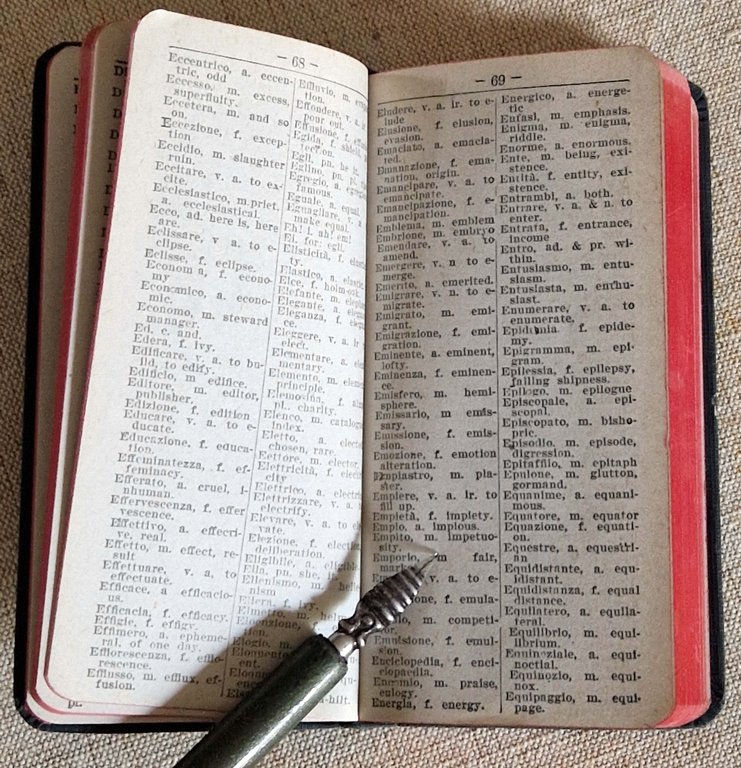 — 68 —
Eccentrico, a. eccen-
tric, odd
Eccesso, m. excess,
superfluity.
Eccetera, m. and so
on.
Eccezione, f. excep-
tion
Eccidio, m. slaughter
ruin.
Eccitare, v. a. to ex-
cite.
Ecclesiastico, m.priet.
a. ecclesiastical.
Ecco, ad. here is, here
are.
Eclissare, v a. to e-
clipse.
Eclisse, f. eclipse.
Econom a, f. econo-
my
Economico, a. econo-
mic.
Economo, m. steward
manager.
Ed, c. and.
Edera, f. ivy.
Edificare, v. a. to bu-
ild, to edify.
Edificio, m. edifice.
Editore, m. editor,
publisher.
Edizione, f. edition
Educare, v. a. to e-
ducate.
Educazione, f. educa-
tion.
Effeminatezza, f. ef-
feminacy.
Efferato, a. cruel, i-
nhuman.
Effervescenza, f. effer
vescence.
Effettivo, a. effecri-
ve, real.
Effetto, m. effect, re-
sult
Effettuare, v. a, to
effectuate.
Efficace, a efficacio-
us.
Efficacia, f. efficacy.
Effigie, f. effigy.
Effimero, a. epheme-
ral. of one day.
Efflorescenza, f. efflo-
rescence.
Efflusso, m. efflux, ef-
fusion.
Effluvio, m.
tion.
Effondere, v.
pour out.
Effusione, f.
Egida, f.
tection.
Egli, pn. he, it.
Eglino, pn. pl.
Egregio, a.
famous.
Eguale, a. equal.
Eguagliare, v. a
make equal.
Eh! I, ah!
Ei. for: egli.
Elasticità, f.
ty.
Elastico, a.
Elce, f. holm-oak.
Elefante, m.
Elegante, a.
Eleganza, f.
ce.
Eleggere, v. a. ir
elect.
Elementare, a.
mentary.
Elemento, m.
principle.
Elemosina, f.
pl. charity.
Elenco, m.
index.
Eletto, a.
chosen, rare.
Elettore, m. elector.
Elettricità, f.
city
Elettrico, a.
Elettrizzare, v. a.
electrify.
Elevare, v. a. to
vate.
Elezione, f.
deliberation.
Eligibile, a.
Ella, pn. she, it
Ellenismo, m
nism
Ellera, f. ivy.
Elmetto, m.
Elocuzione,
Elogio, m.
ent.
-hilt.
— 69 —
Eludere, v. a. ir. to e-
lude
Elusione, f. elusion,
evasion.
Emaciato, a. emacia-
ted.
Emanazione, f. ema-
nation, origin.
Emancipare, v. a. to
emancipate.
Emancipazione, f. e-
mancipation.
Emblema, m. emblem
Embrione, m. embryo
Emendare, v. a. to
amend.
Emergere, v. n to e-
merge.
Emerito, a. emerited.
Emigrare, v. n. to e-
migrate.
Emigrato, m. emi-
grant.
Emigrazione, f. emi-
gration.
Eminente, a. eminent,
lofty.
Eminenza, f. eminen-
ce.
Emisfero, m. hemi-
sphere.
Emissario, m emis-
sary.
Emissione, f. emis-
sion.
Emozione, f. emotion
alteration.
Empiastro, m. pla-
ster.
Empiere, v. a. ir. to
fill up.
Empietà, f. impiety.
Empio, a. impious.
Empito, m. impetuo-
sity.
Emporio, m fair,
v. a. to e-
f. emula-
m. competi-
Emulsione, f. emul-
sion.
Enciclopedia, f. enci-
clopaedia.
Encomio, m. praise,
eulogy.
Energia, f. energy.
Energico, a. energe-
tic
Enfasi, m. emphasis.
Enigma, m. enigma,
riddle.
Enorme, a. enormous.
Ente, m. being, exi-
stence.
Entità, f. entity, exi-
stence.
Entrambi, a. both.
Entrare, v. a. & n. to
enter.
Entrata, f. entrance,
income
Entro, ad. & pr. wi-
thin.
Entusiasmo, m. entu-
siasm.
Entusiasta, m. enthu-
siast.
Enumerare, v. a. to
enumerate.
Epidemia. f. epide-
my.
Epigramma, m. epi-
gram.
Epilessia, f. epilepsy,
falling shipness.
Epilogo, m. epilogue
Episcopale, a. epi-
scopal.
Episcopato, m. bisho-
pric.
Episodio, m. episode,
digression.
Epitaffio, m. epitaph
Epulone, m. glutton,
gormand.
Equanime, a. equani-
mous.
Equatore, m. equator
Equazione, f. equati-
on.
Equestre, a. equestri-
an
Equidistante, a. equi-
distant.
Equidistanza, f. equal
distance.
Equilatero, a. equila-
teral.
Equilibrio, m. equi-
librium.
Equinoziale, a. equi-
noctial.
Equinozio, m. equi-
nox.
Equipaggio, m. equi-
page.